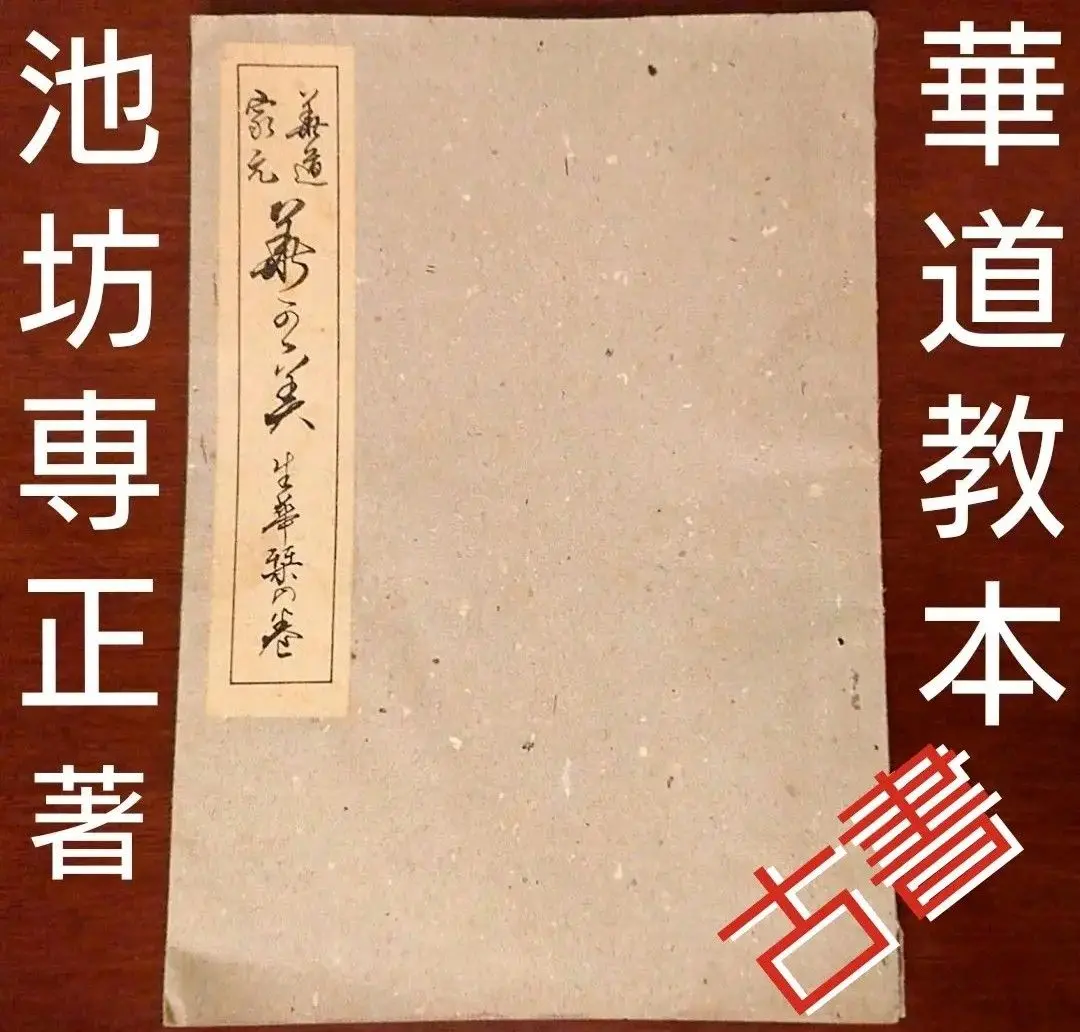 華道教本
池坊専正著
華道
家元
華之美
生華栞の巻
古書